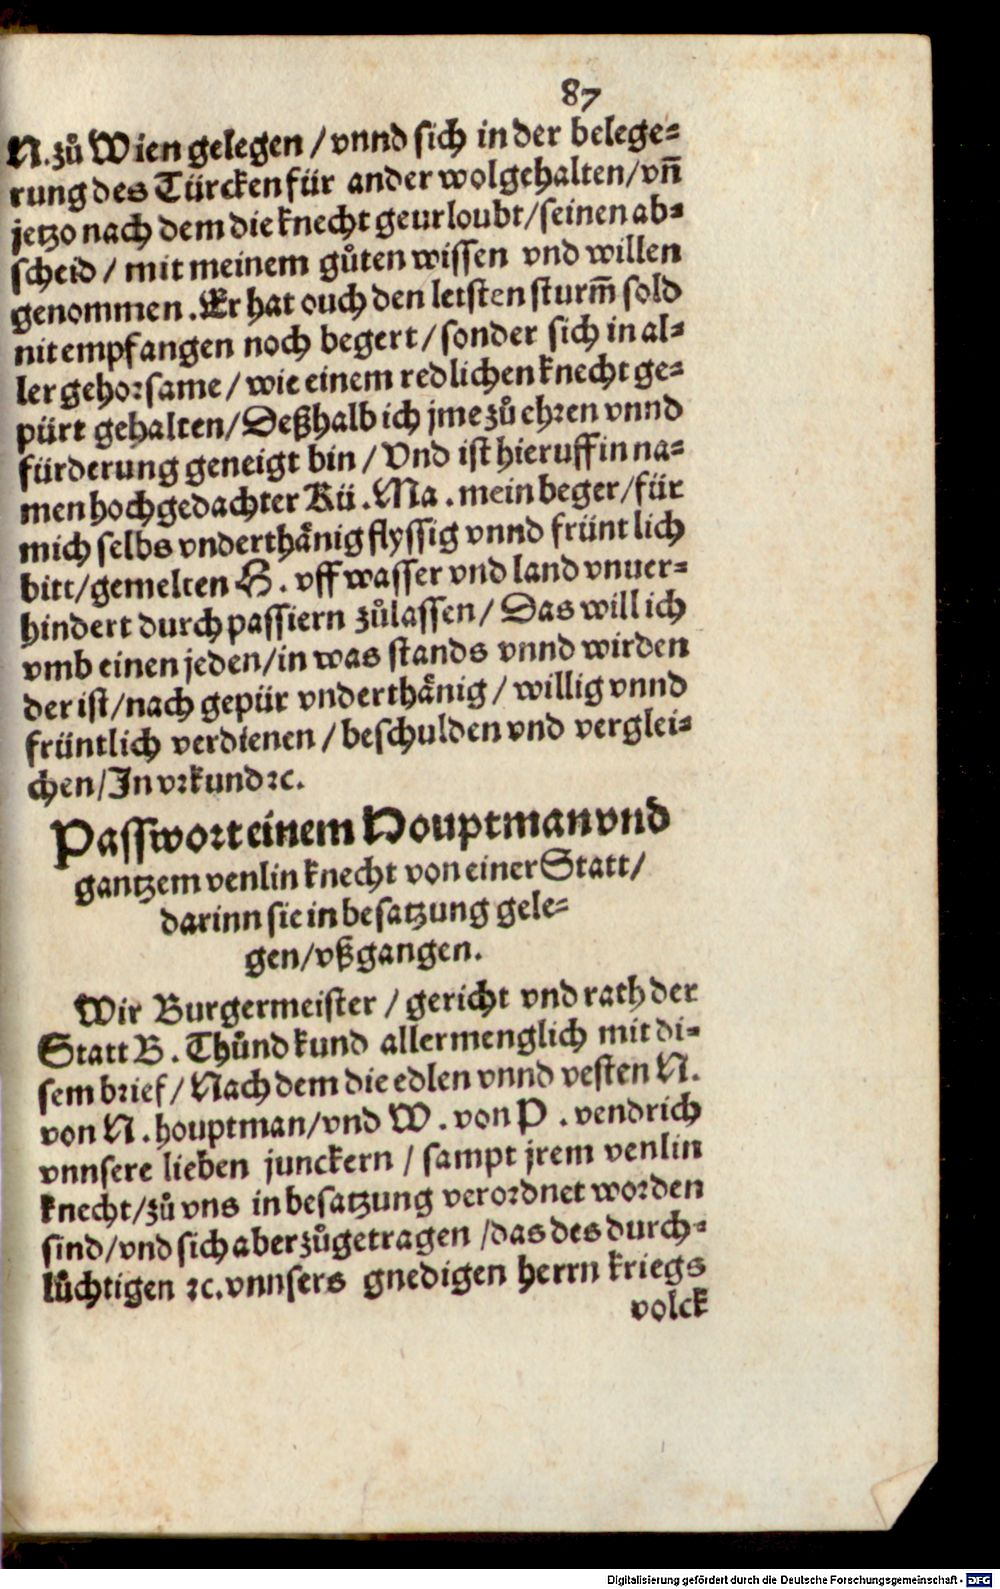 87
N. zů Wien gelegen / vnnd sich in der belege⸗
rung des Türcken für ander wolgehalten / vn̄
jetzo nach dem die knecht geurloubt / seinen ab⸗
scheid / mit meinem gůten wissen vnd willen
genommen. Er hat ouch den letsten sturm̄ sold
nit empfangen noch begert / sonder sich in al⸗
ler gehorsame / wie einem redlichen knecht ge⸗
pürt gehalten / Deßhalb ich jme zů ehren vnnd
fürderung geneigt bin / Vnd ist hieruff in na⸗
men hochgedachter Kü. Ma. mein beger / für
mich selbs vnderthånig flyssig vnnd früntlich
bitt / gemelten H. vff wasser vnd land vnuer⸗
hindert durch passiern zůlassen / Das will ich
vmb einen jeden / in was stands vnnd wirden
der ist / nach gepür vnderthånig / willig vnnd
früntlich verdienen / beschulden vnd verglei⸗
chen / In vrkund ꝛc.
Passwort einem Houptman vnd
gantzem venlin knecht von einer Statt /
darinn sie in besatzung gele⸗
gen / vßgangen.
Wir Burgermeister / gericht vnd rath der
Statt B. Thůnd kund allermenglich mit di⸗
sem brief / Nach dem die edlen vnnd vesten N.
von N. houptman / vnd W. von P. vendrich
vnnsere lieben junckern / sampt jrem venlin
knecht / zů vns in besatzung verordnet worden
sind / vnd sich aber zůgetragen / das des durch⸗
lüchtigen ꝛc. vnnsers gnedigen herrn kriegs
volck
Digitalisierung gefördert durch die Deutsche Forschungsgemeinschaft - DFG